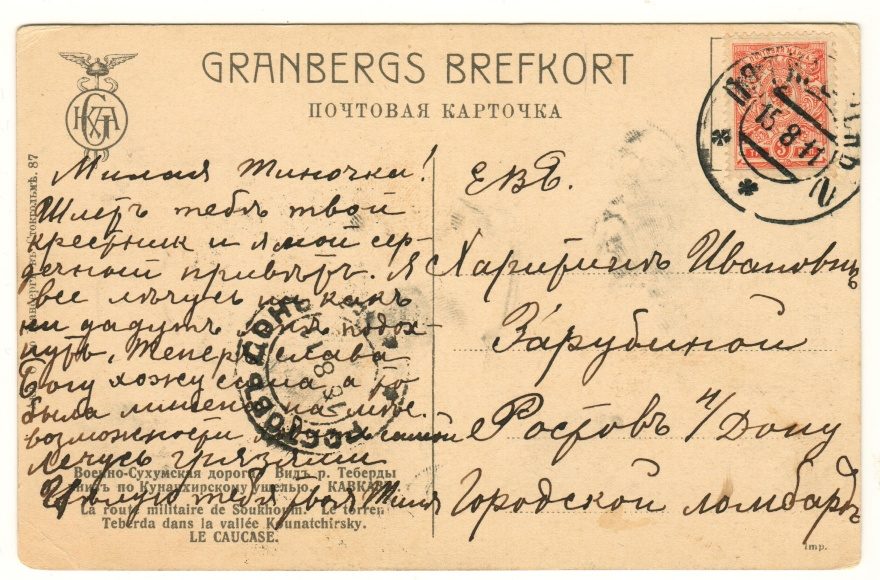 GRANBERGS BREFKORT
ПОЧТОВАЯ КАРТОЧКА
15.8.11
Милая Тиночка!
Шлетъ тебѣ твой
крестник и я мой сер-
дечный привѣтъ. Я
все лѣчусь
ни дадутъ
Теперь слава
Богу хожу сама а то
была лишена
возможности
лечусь грязями
Цѣлую тебя твоя
ЕВБ.
Харитинѣ Ивановнѣ
Зарубиной
Ростовъ н/Дону
Городской ломбардъ
РОСТОВЪ ДОНЪ
Военно-Сухумская дорога. Видъ р. Теберды
по Куначхирскому ущелью. КАВКАЗ
La route militaire de Soukhoum. Le torrent
Teberda dans la vallée Kounatchirsky.
LE CAUCASE.
Imp.
Стокгольмѣ. 87